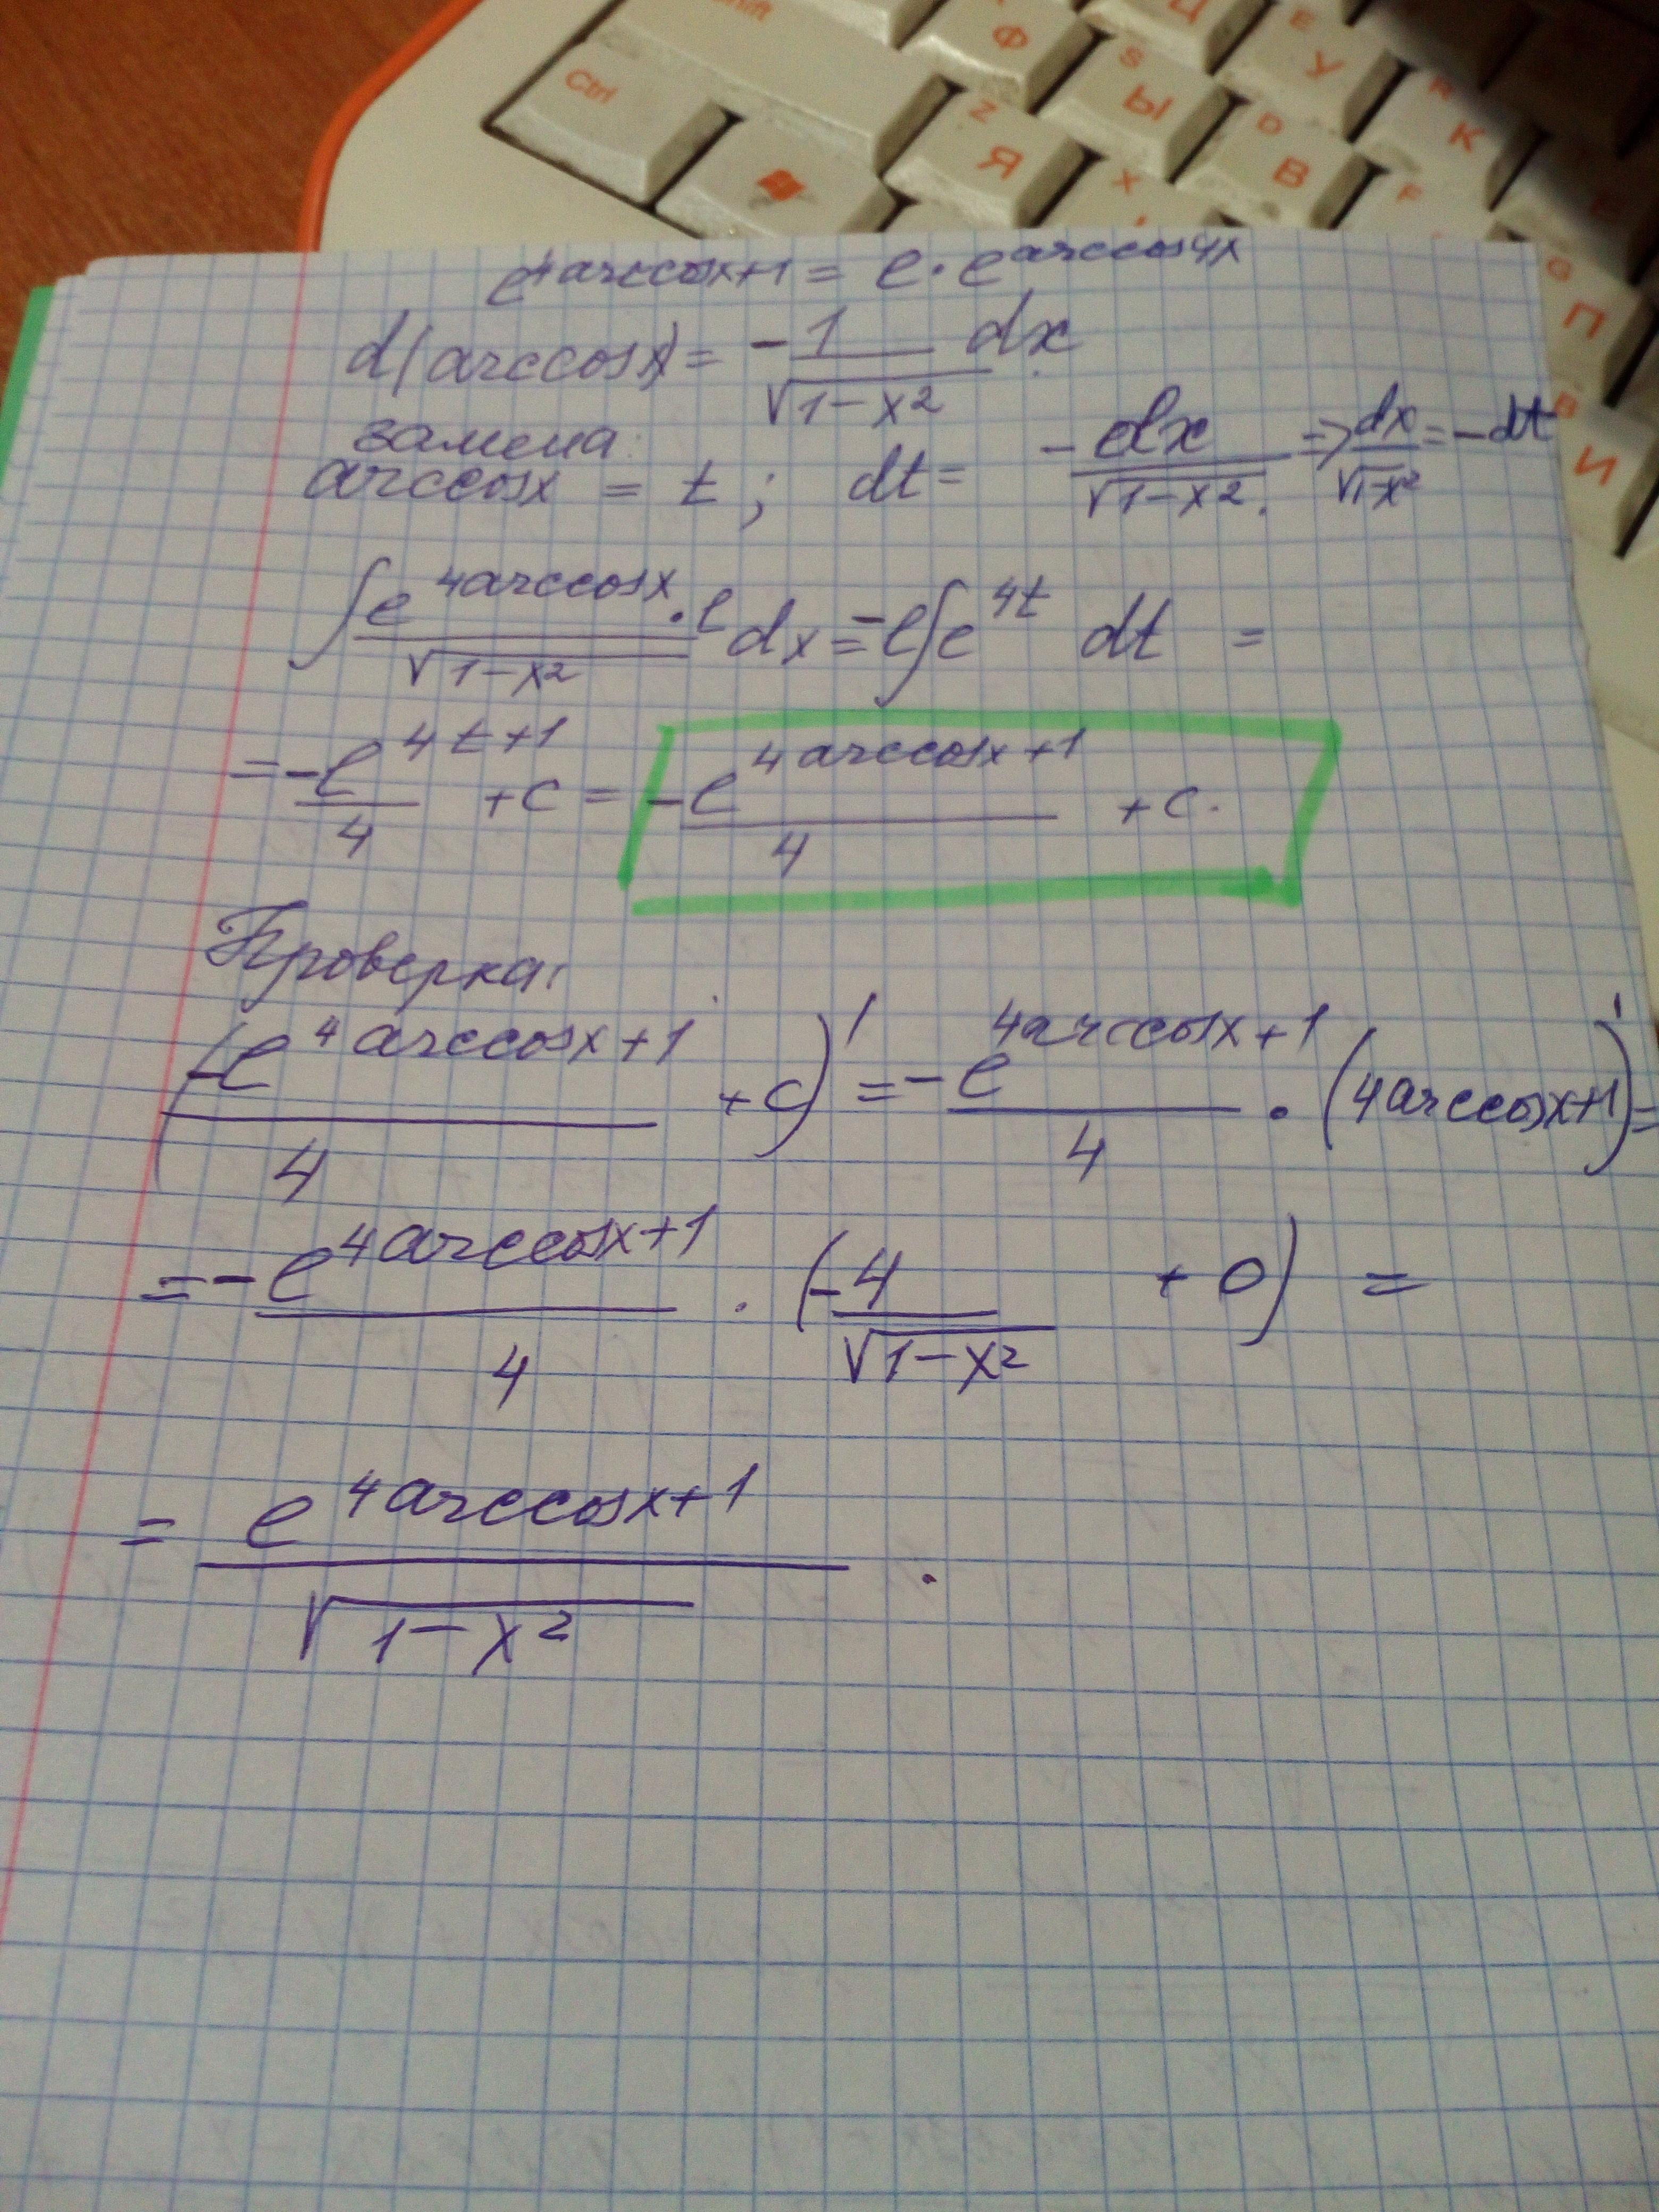 Shift
Ф Ц Е У
Ctrl S Ы R К
Z Я D В F
X G П
В И
e^{4arccosx+1} = e · e^{arccos4x}
d(arccosx) = -1/√(1-x²) dx
замена:
arccosx = t ; dt = -dx/√(1-x²) => dx/√(1-x²) = -dt
∫ (e^{4arccosx} · e)/√(1-x²) dx = -e∫e^{4t} dt =
= -e^{4t+1}/4 + c = -e^{4arccosx+1}/4 + c.
Проверка:
(-e^{4arccosx+1}/4 + c)' = -e^{4arccosx+1}/4 · (4arccosx+1)' =
= -e^{4arccosx+1}/4 · (-4/√(1-x²) + 0) =
= e^{4arccosx+1}/√(1-x²) .